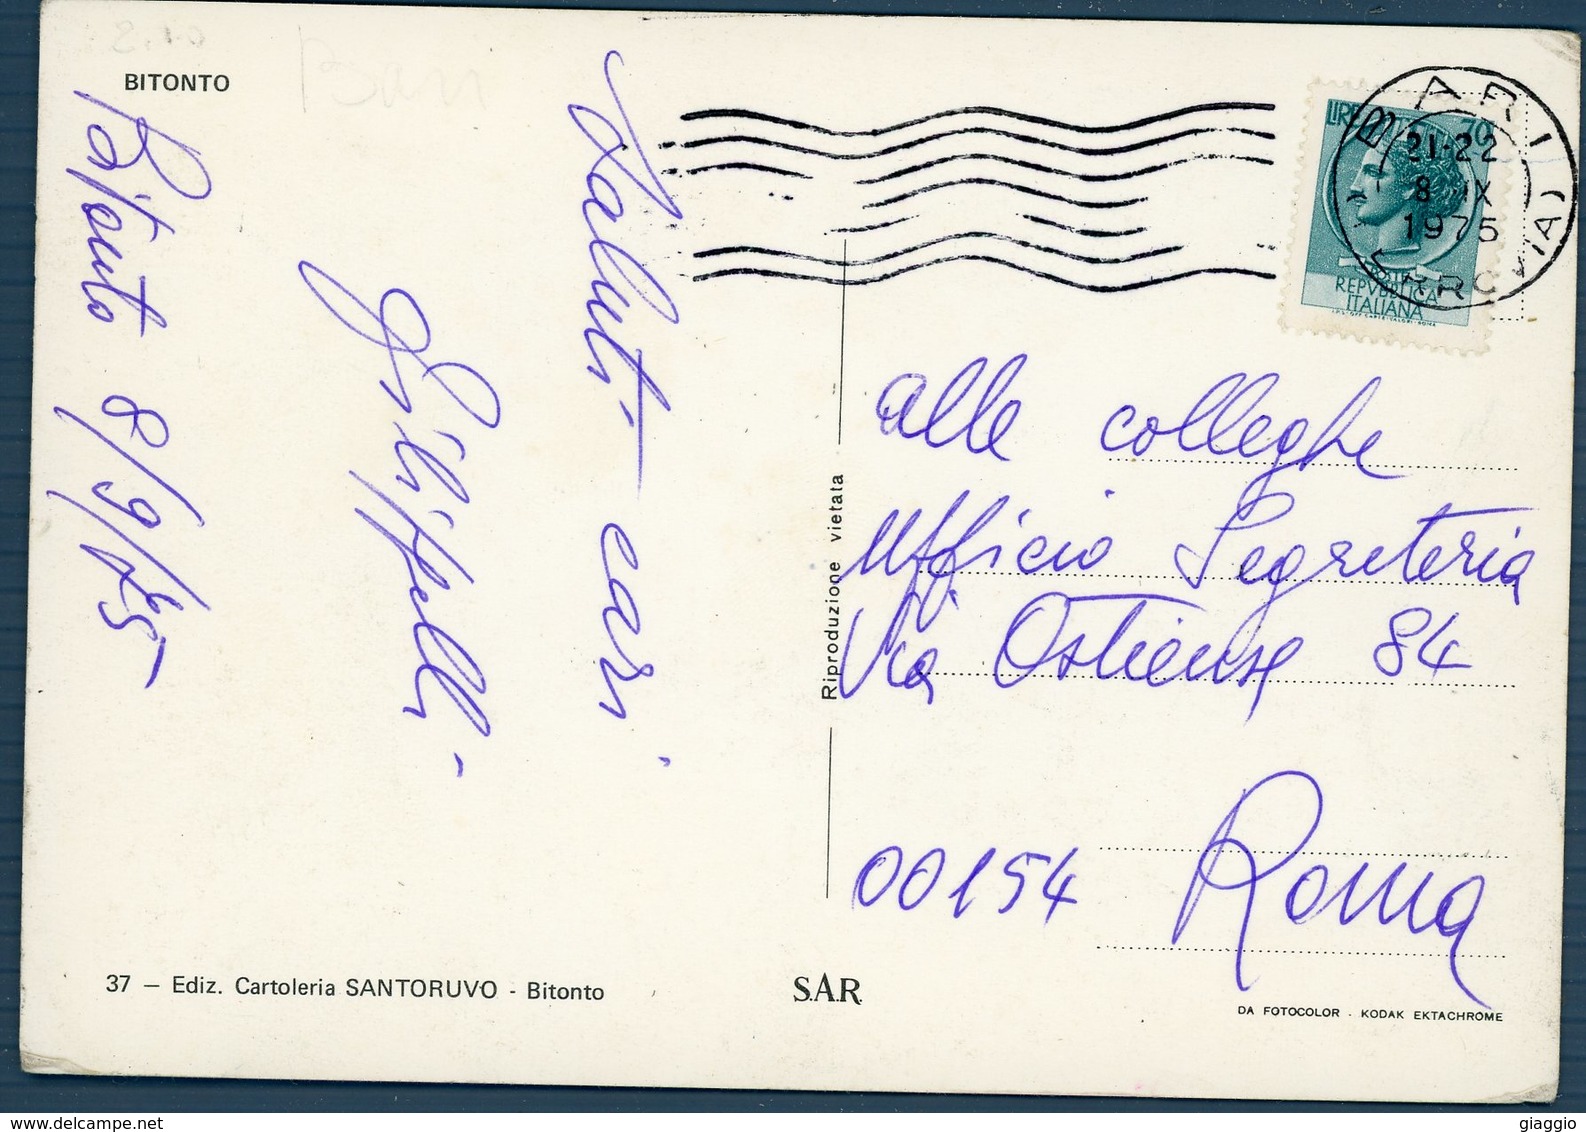 BITONTO
Bitonto 8/9/75
Saluti cari
LIRE 70
POSTE
REPVBBLICA
ITALIANA
BARI
21-22
8 IX
1975
FERROVIA)
alle colleghe
Ufficio Segreteria
Via Ostiense 84
00154 Roma
Riproduzione vietata
37 — Ediz. Cartoleria SANTORUVO - Bitonto
S.A.R.
DA FOTOCOLOR - KODAK EKTACHROME
giaggio